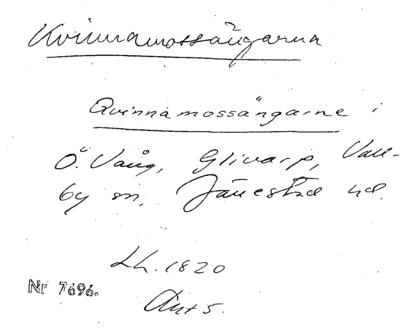 Kvinnamossängarna
Qvinnamossängarne i
Ö. Vång, Glivarp, Vall-
by sn, Järrestad hd.
Lh. 1820
Akt 5.
Nr 7696.